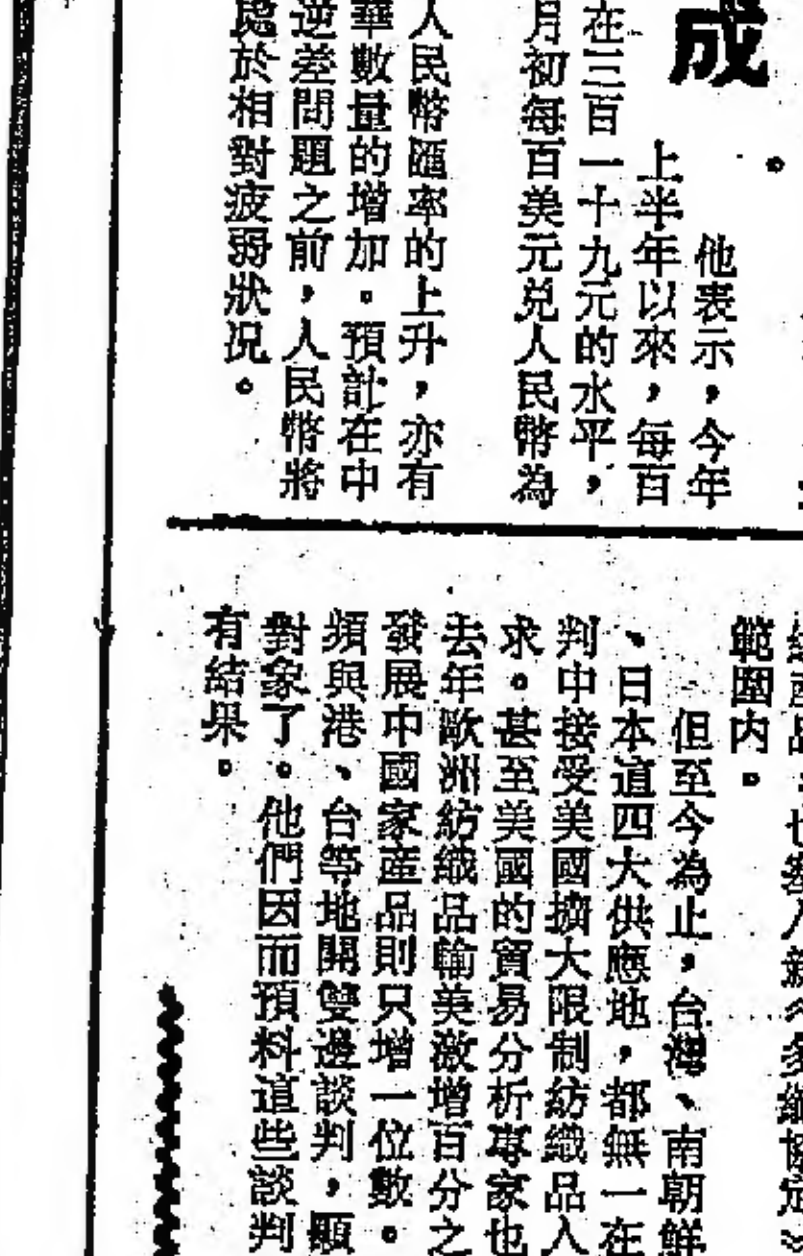 成
。
他表示，今年
上半年以來，每百
在三百一十九元的水平，
月初每百美元兑人民幣為
人民幣匯率的上升，亦有
華數量的增加。預計在中
逆差問題之前，人民幣將
處於相對疲弱狀況。
範圍内。
但至今為止，台灣、南朝鮮
、日本這四大供應地，都無一在
判中接受美國擴大限制紡織品入
求。甚至美國的貿易分析專家也
去年歐洲紡織品輸美激增百分之
發展中國家產品則只增一位數。
頻與港、台等地開雙邊談判，顯
對象了。他們因而預料這些談判
有結果。